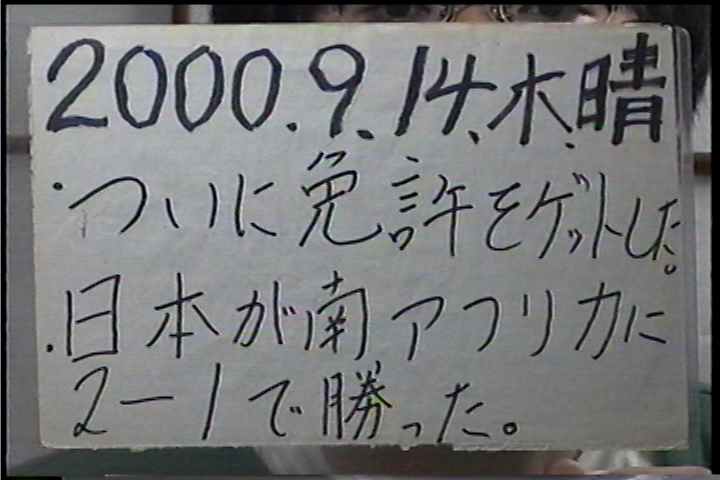 2000.9.14.木.晴
・ついに免許をゲットした。
・日本が南アフリカに
2-1で勝った。